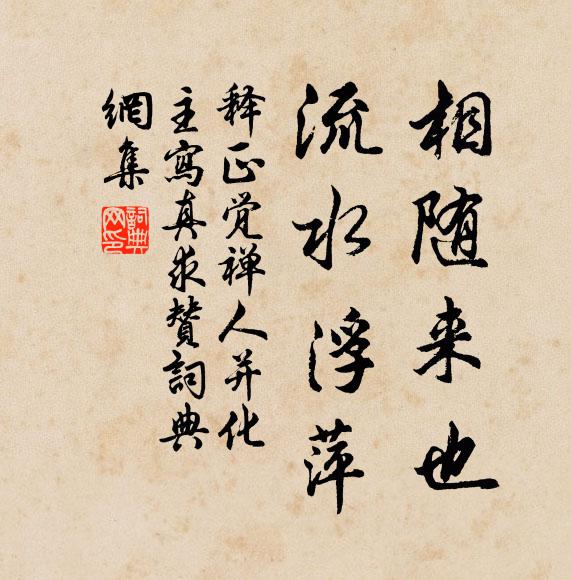 相随来也
流水浮萍
释正觉禅人并化
主寫真求赞詞典
網集
詞典
网印